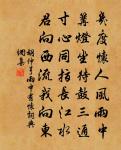 幾度懷人風雨中
篝燈坐待鼓三通
寸心同指長江水
君向西流我向東
胡仲弓雨中書懷詞典
網集